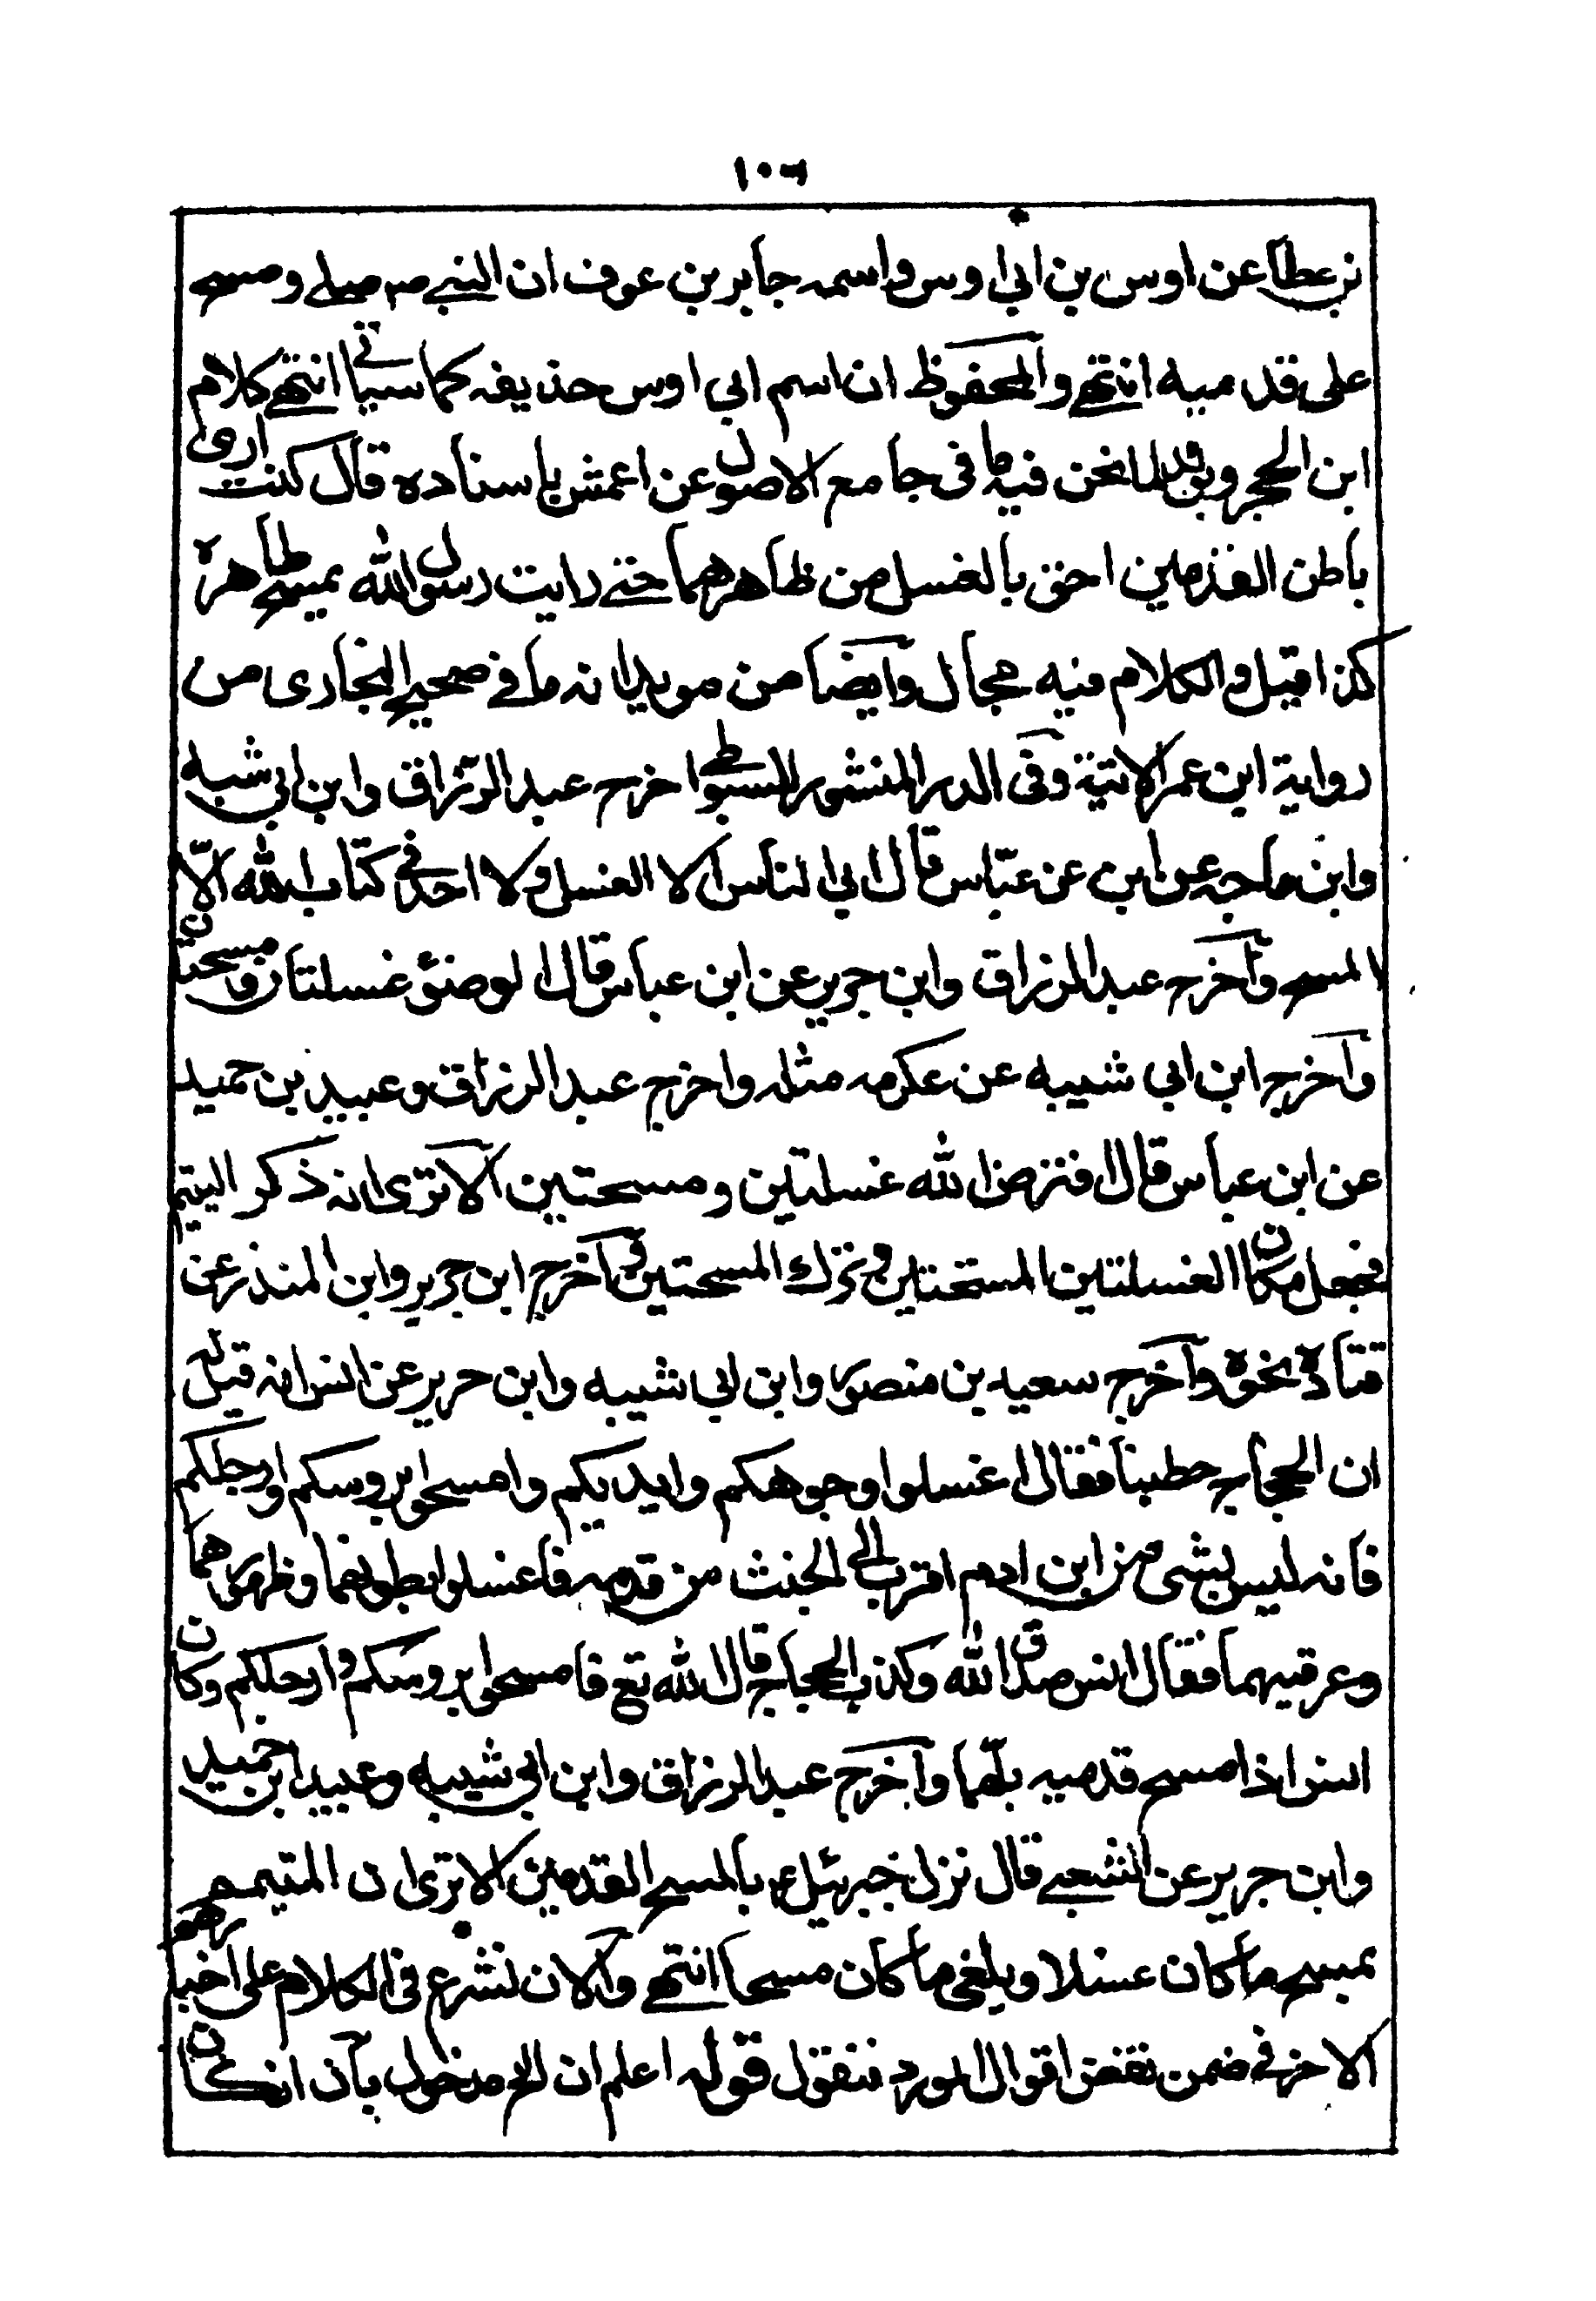 ١٠٦
بن عطا عن اوس بن ابي اوس واسمه جابر بن عوف ان النبي صلى ومسح
على قدميه انتهى والمحفوظ ان اسم ابي اوس حذيفه كما سياتي انتهى كلام
ابن الحجر ويويد لما نحن فيه ما فى جامع الاصول عن اعمش باسناده قال كنت ارى
باطن القدمين احق بالغسل من ظاهرهما حتى رايت رسول الله يمسح ظاهره
كذا قيل والكلام فيه مجال وايضا من مويداته ما في صحيح البخارى من
رواية ابن عمر الاتية وفى الدر المنثور للسيوطى اخرج عبد الرزاق وابن ابي شيبه
وابن ماجه عن ابن عباس قال ابى الناس الا الغسل ولا اجد فى كتاب الله الا
المسح واخرج عبد الرزاق وابن جرير عن ابن عباس قال الوضوء غسلتان ومسحتان
واخرج ابن ابي شيبه عن عكرمه مثله واخرج عبد الرزاق وعبيد بن حميد
عن ابن عباس قال افترض الله غسلتين ومسحتين الا ترى انه ذكر التيمم
فجعل مكان الغسلتين المستحتاين وترك المسحتين واخرج ابن جرير وابن المنذر عن
قتادة نحوه واخرج سعيد بن منصور وابن ابي شيبه وابن جرير عن انس انه قيل له
ان الحجاج خطبنا فقال اغسلوا وجوهكم وايديكم وامسحوا بروسكم وارجلكم
فانه ليس بشى من ابن ادم اقرب الى الخبث من قدميه فاغسلوا بطونهما وظهورهما
وعرقيبهما فقال انس صدق الله وكذب الحجاج قال الله تع فامسحوا بروسكم وارجلكم وكان
انس اذا مسح قدميه بلهما واخرج عبد الرزاق وابن ابي شيبه وعبيد ابن حميد
وابن جرير عن الشعبي قال نزل جبرئيل ع بالمسح القدمين الا ترى ان المتيمم
يمسح ما كان غسلا ويلغى ما كان مسحا انتهى والان نشرع فى الكلام على اخبارهم
الاخر فى ضمن نقض اقوال المورد فنقول قوله اعلم ان الخ مدخول بان انكان